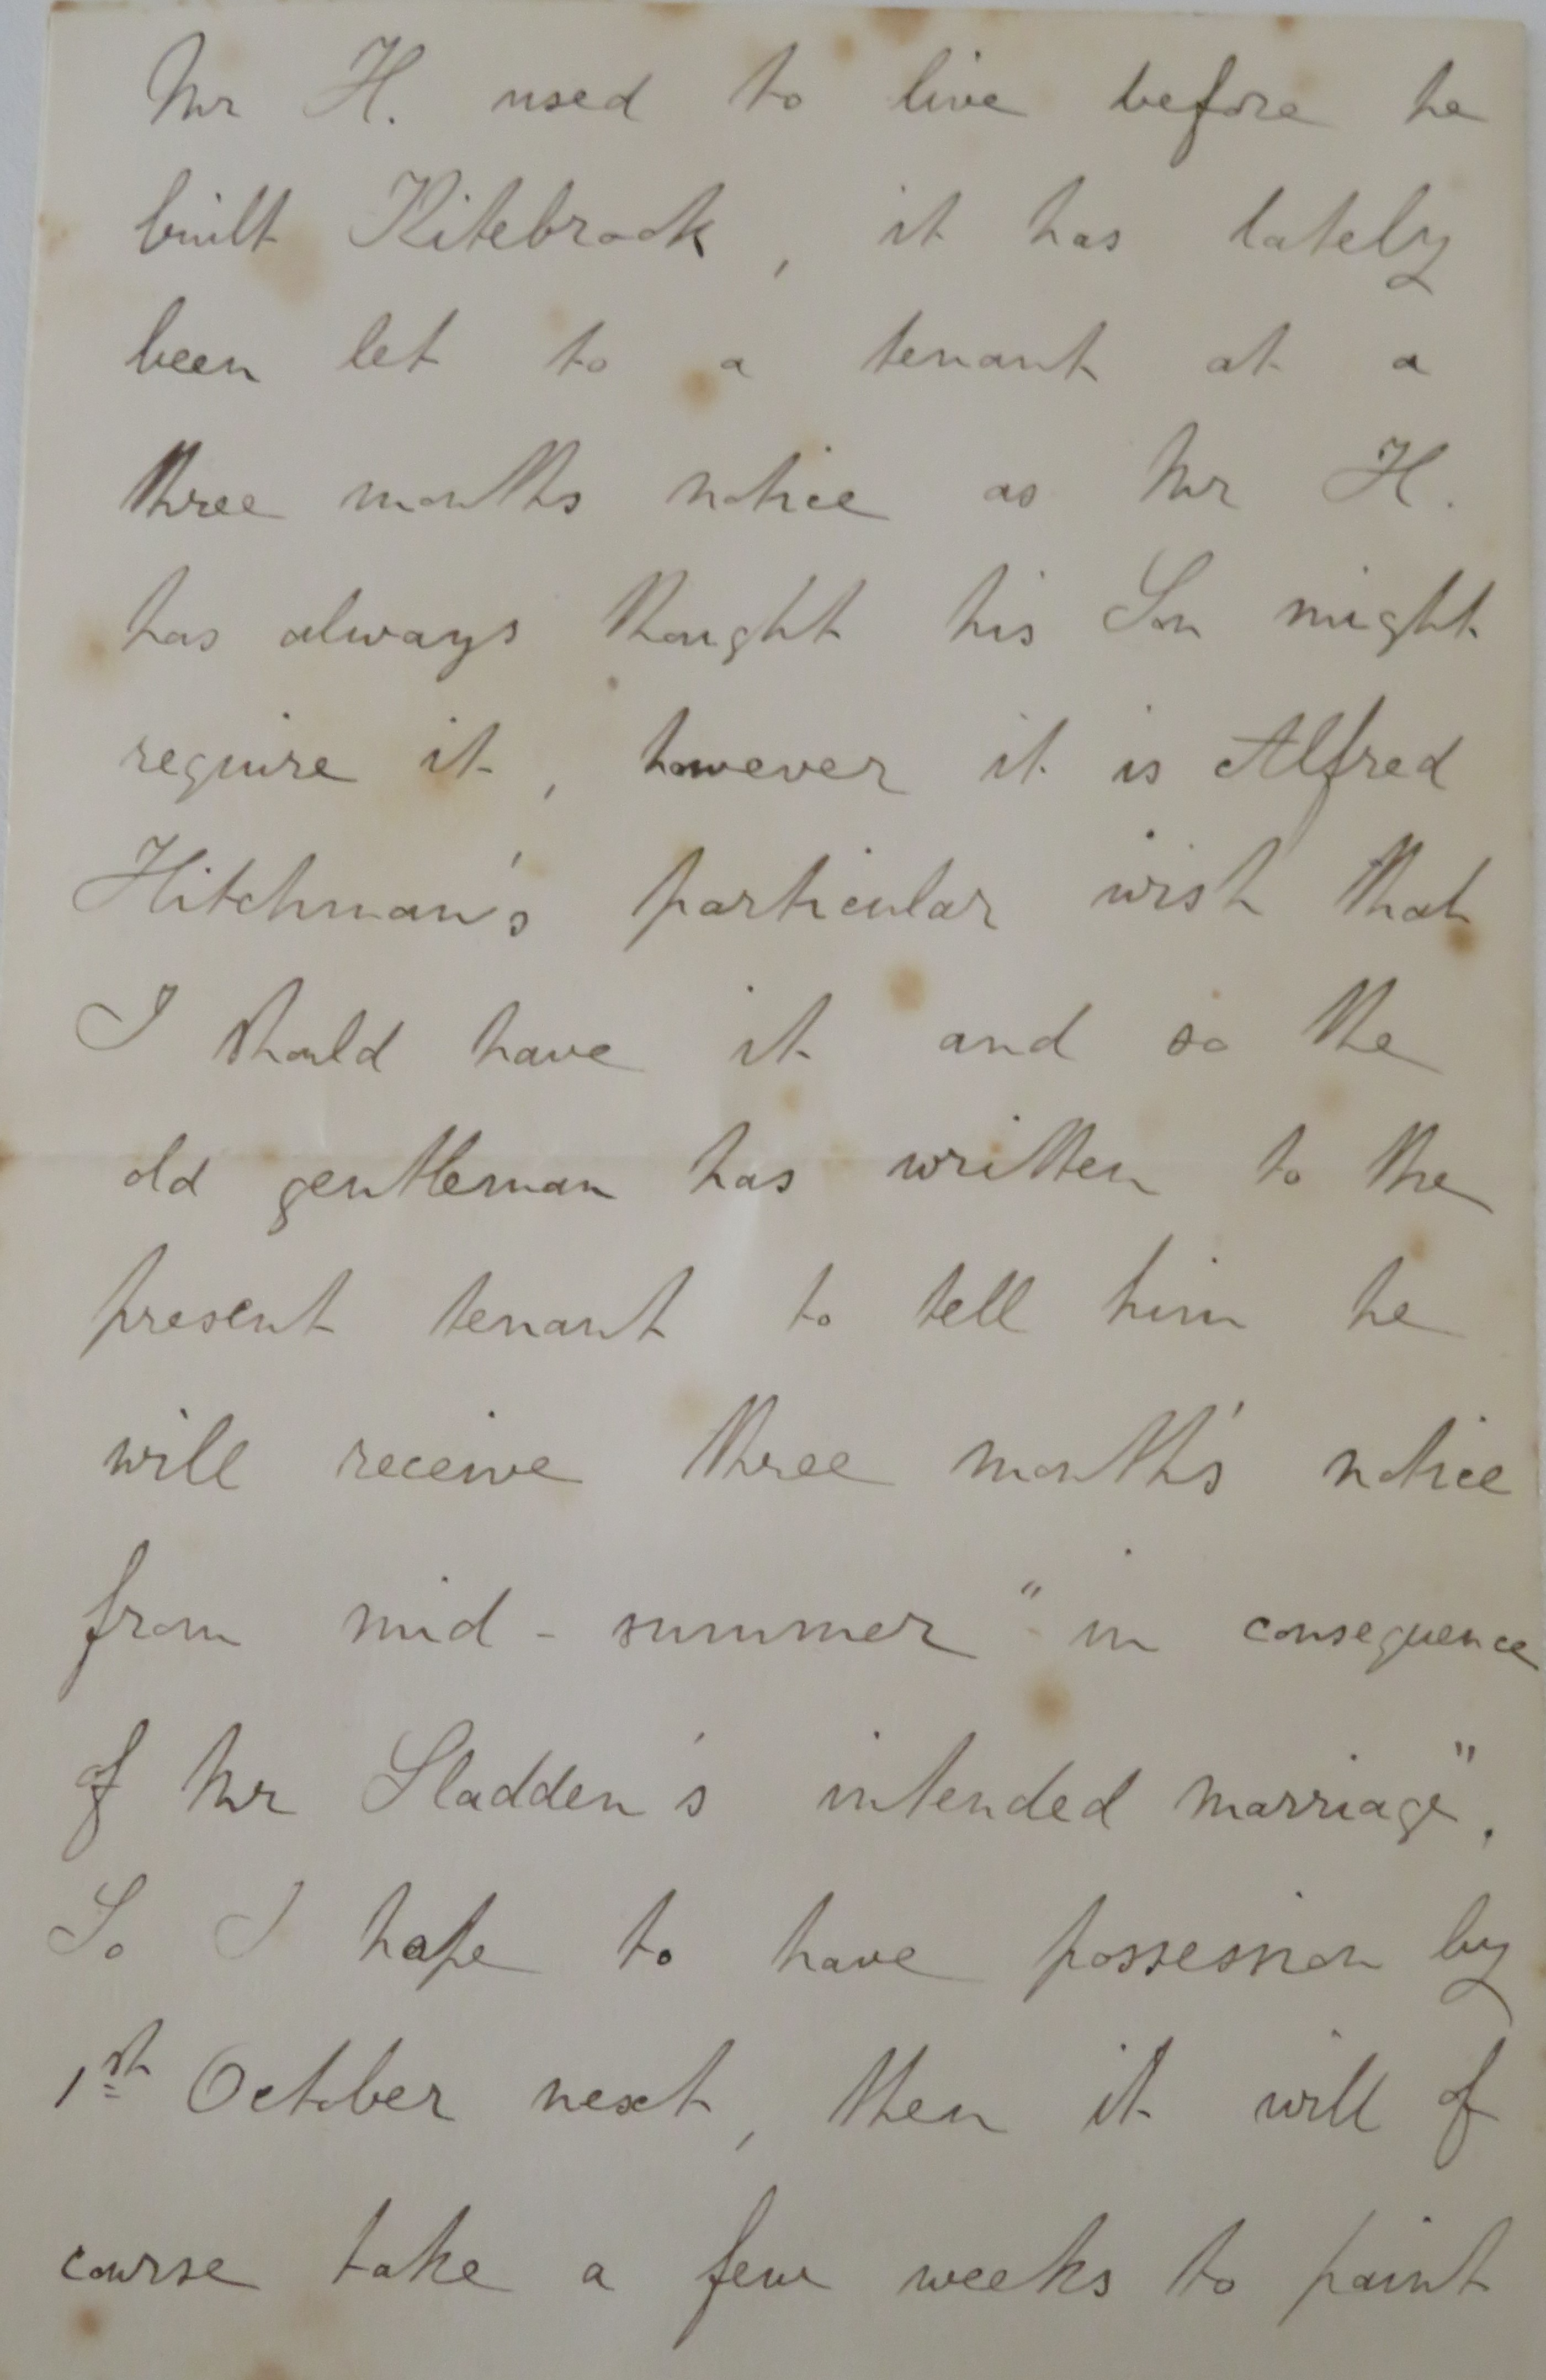 Mr H. used to live before he
built Kitebrook, it has lately
been let to a tenant at a
three months notice as Mr H.
has always thought his Son might
require it, however it is Alfred
Hitchman's particular wish that
I should have it and so the
old gentleman has written to the
present tenant to tell him he
will receive three month's notice
from mid-summer "in consequence
of Mr Sladden's intended marriage".
So I hope to have possession by
1st October next, then it will of
course take a few weeks to paint